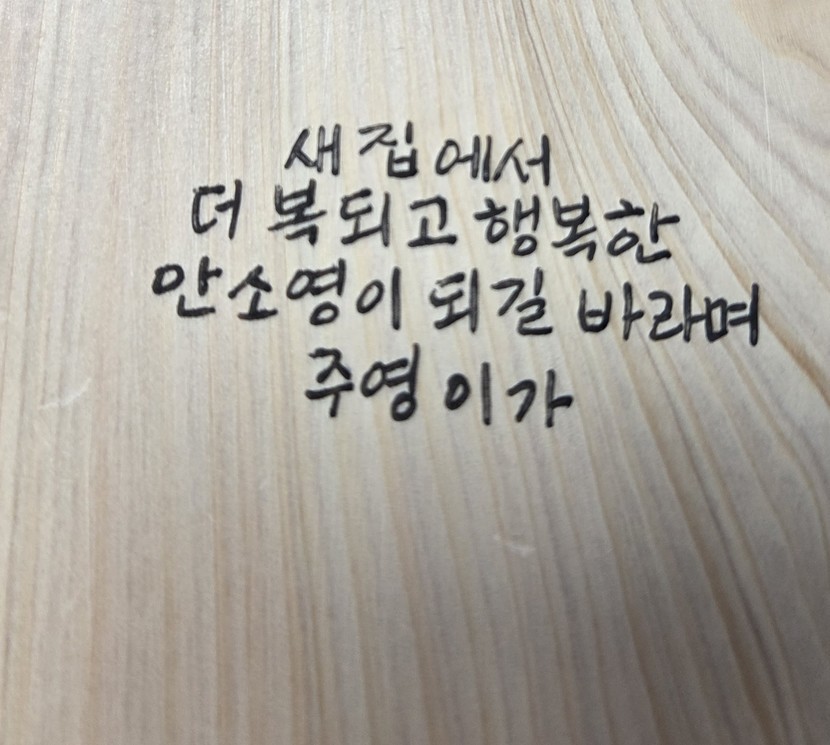 새집에서
더 복되고 행복한
안소영이 되길 바라며
주영이가